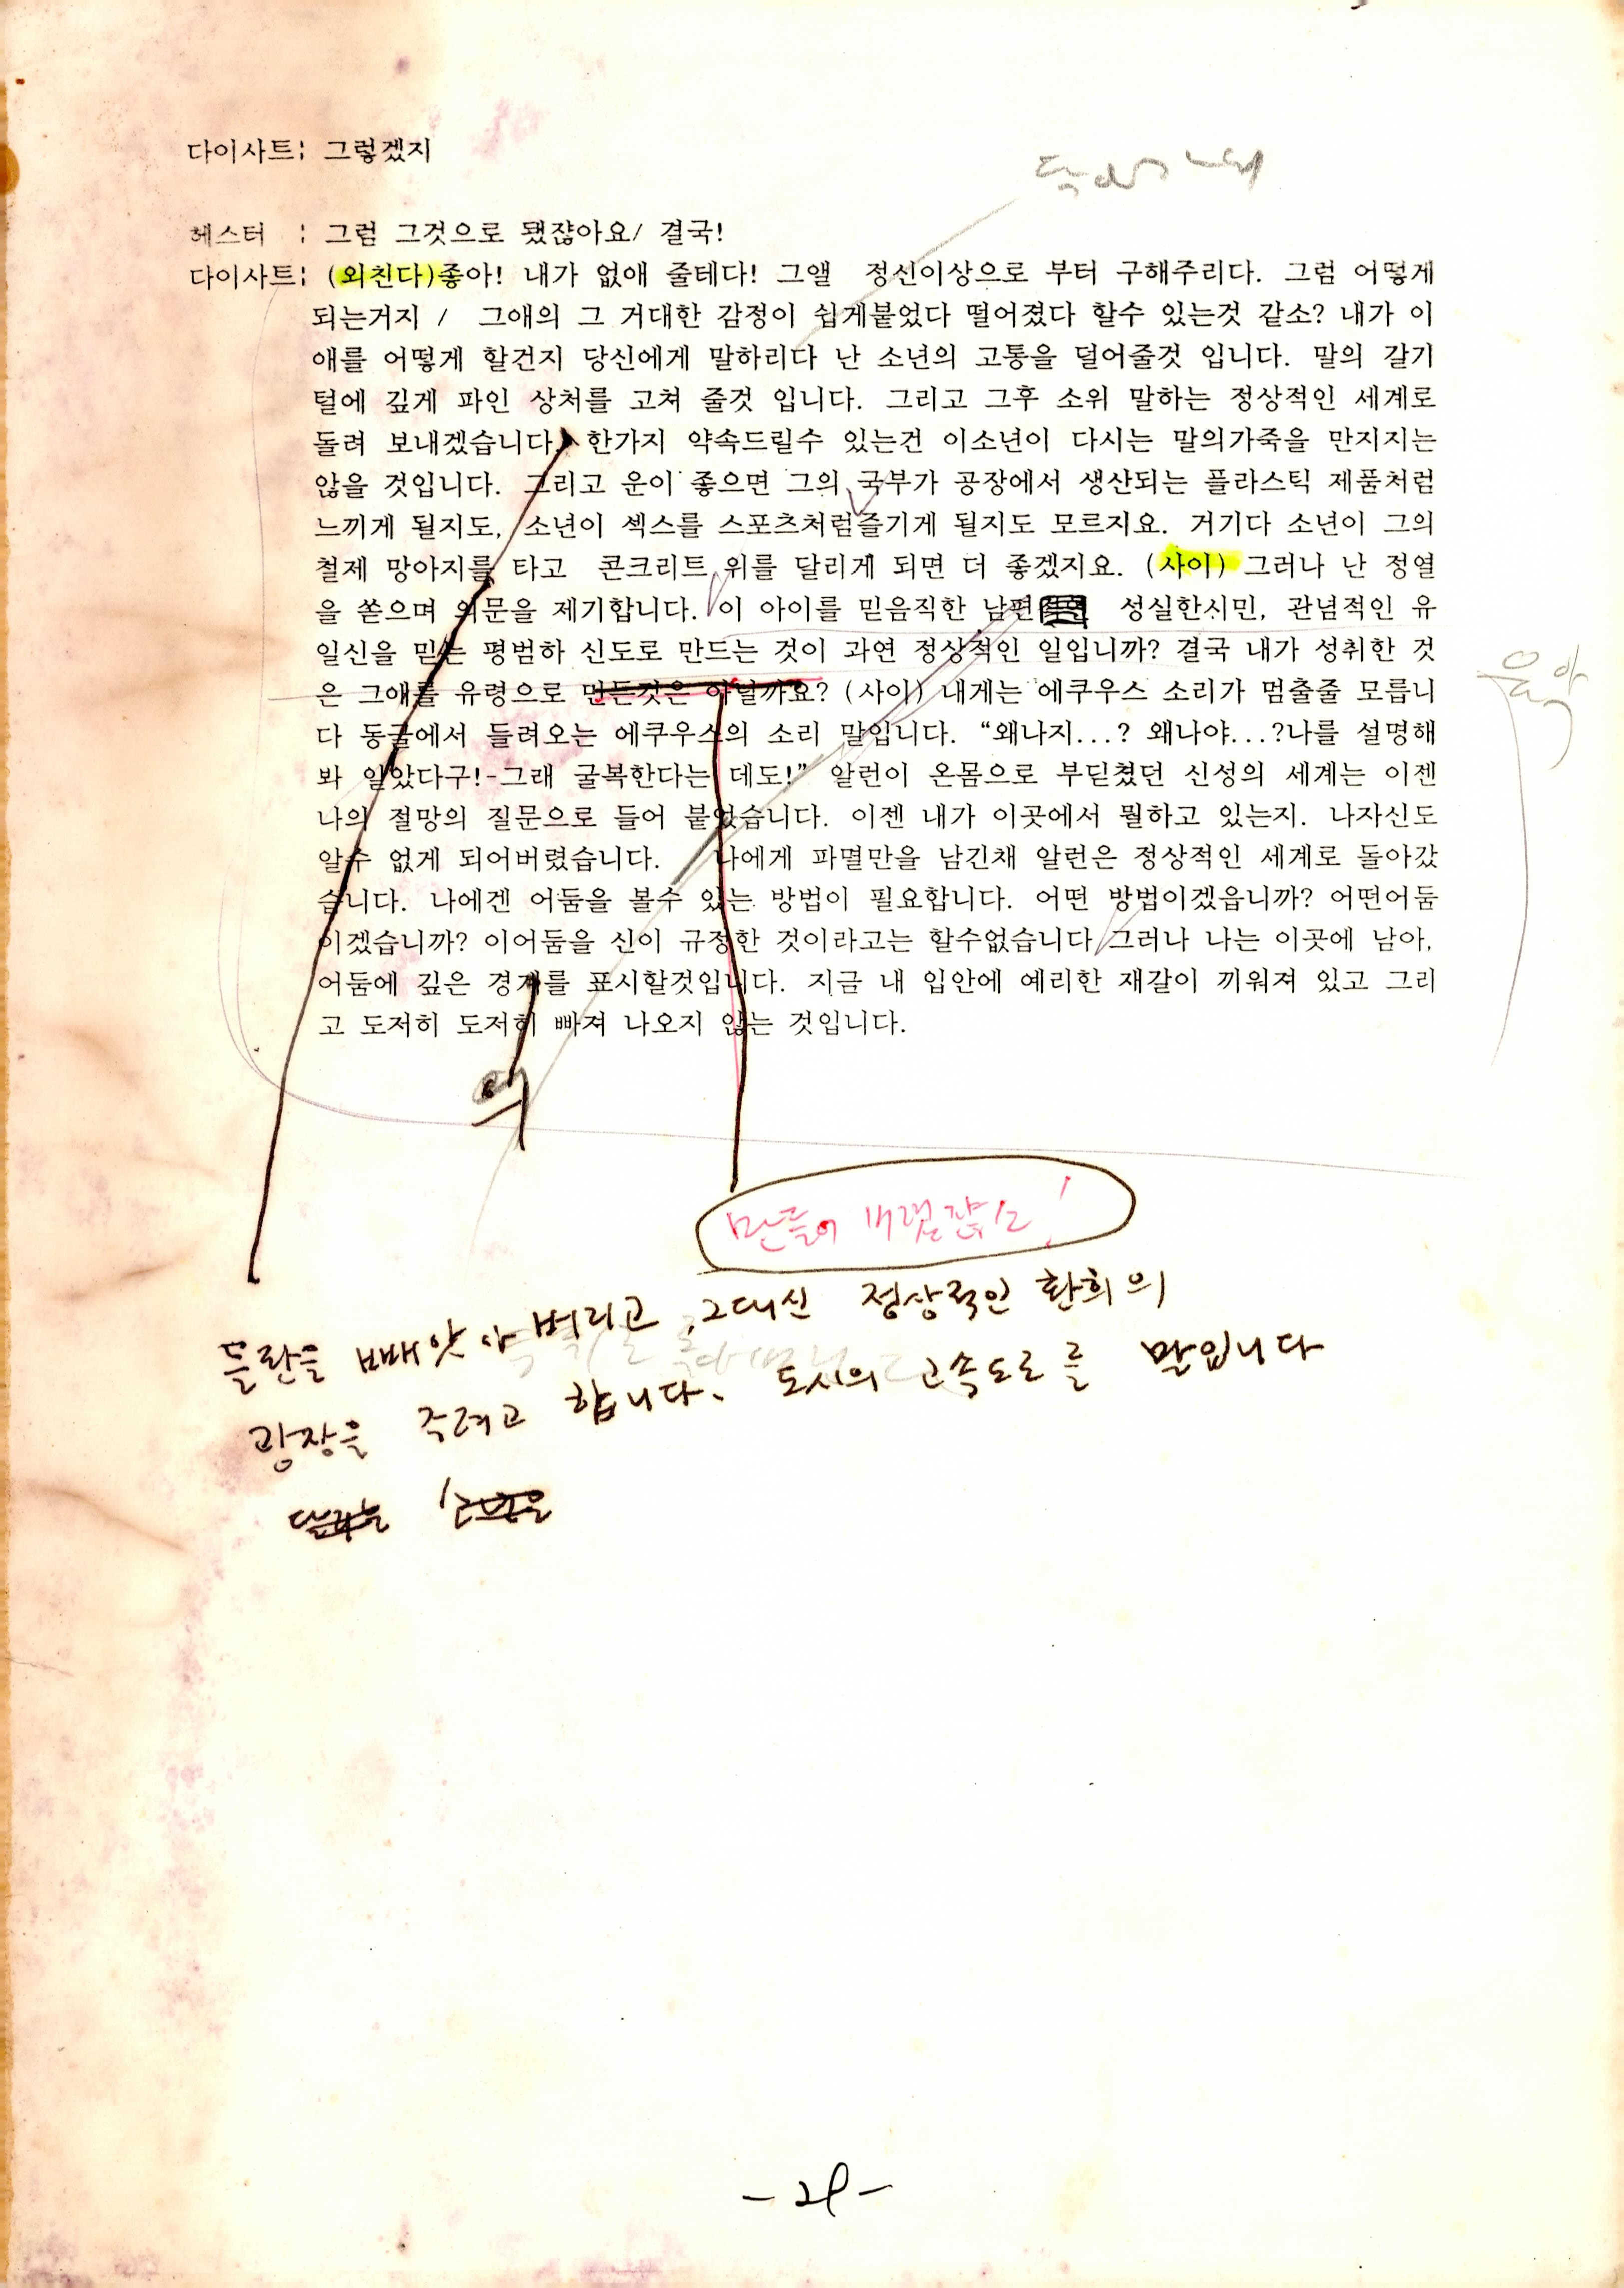 다이사트: 그렇겠지
헤스터 : 그럼 그것으로 됐쟎아요/ 결국!
다이사트: (외친다)좋아! 내가 없애 줄테다! 그앨 정신이상으로 부터 구해주리다. 그럼 어떻게
되는거지 / 그애의 그 거대한 감정이 쉽게붙었다 떨어졌다 할수 있는것 같소? 내가 이
애를 어떻게 할건지 당신에게 말하리다 난 소년의 고통을 덜어줄것 입니다. 말의 갈기
털에 깊게 파인 상처를 고쳐 줄것 입니다. 그리고 그후 소위 말하는 정상적인 세계로
돌려 보내겠습니다. 한가지 약속드릴수 있는건 이소년이 다시는 말의가죽을 만지지는
않을 것입니다. 그리고 운이 좋으면 그의 국부가 공장에서 생산되는 플라스틱 제품처럼
느끼게 될지도, 소년이 섹스를 스포츠처럼즐기게 될지도 모르지요. 거기다 소년이 그의
철제 망아지를 타고 콘크리트 위를 달리게 되면 더 좋겠지요. (사이) 그러나 난 정열
을 쏟으며 의문을 제기합니다. 이 아이를 믿음직한 남편 성실한시민, 관념적인 유
일신을 믿는 평범하 신도로 만드는 것이 과연 정상적인 일입니까? 결국 내가 성취한 것
은 그애를 유령으로 만든것은 아닐까요? (사이) 내게는 에쿠우스 소리가 멈출줄 모릅니
다 동굴에서 들려오는 에쿠우스의 소리 말입니다. “왜나지...? 왜나야...?나를 설명해
봐 알았다구!-그래 굴복한다는 데도!” 알런이 온몸으로 부딛쳤던 신성의 세계는 이젠
나의 절망의 질문으로 들어 붙었습니다. 이젠 내가 이곳에서 뭘하고 있는지. 나자신도
알수 없게 되어버렸습니다. 나에게 파멸만을 남긴채 알런은 정상적인 세계로 돌아갔
습니다. 나에겐 어둠을 볼수 있는 방법이 필요합니다. 어떤 방법이겠읍니까? 어떤어둠
이겠습니까? 이어둠을 신이 규정한 것이라고는 할수없습니다 그러나 나는 이곳에 남아,
어둠에 깊은 경계를 표시할것입니다. 지금 내 입안에 예리한 재갈이 끼워져 있고 그리
고 도저히 도저히 빠져 나오지 않는 것입니다.
음악
의
만들어 버렸쟎소!
들판을 빼앗아 버리고, 그대신 정상적인 환희의
광장을 주려고 합니다. 도시의 고속도로를 말입니다
- 29 -